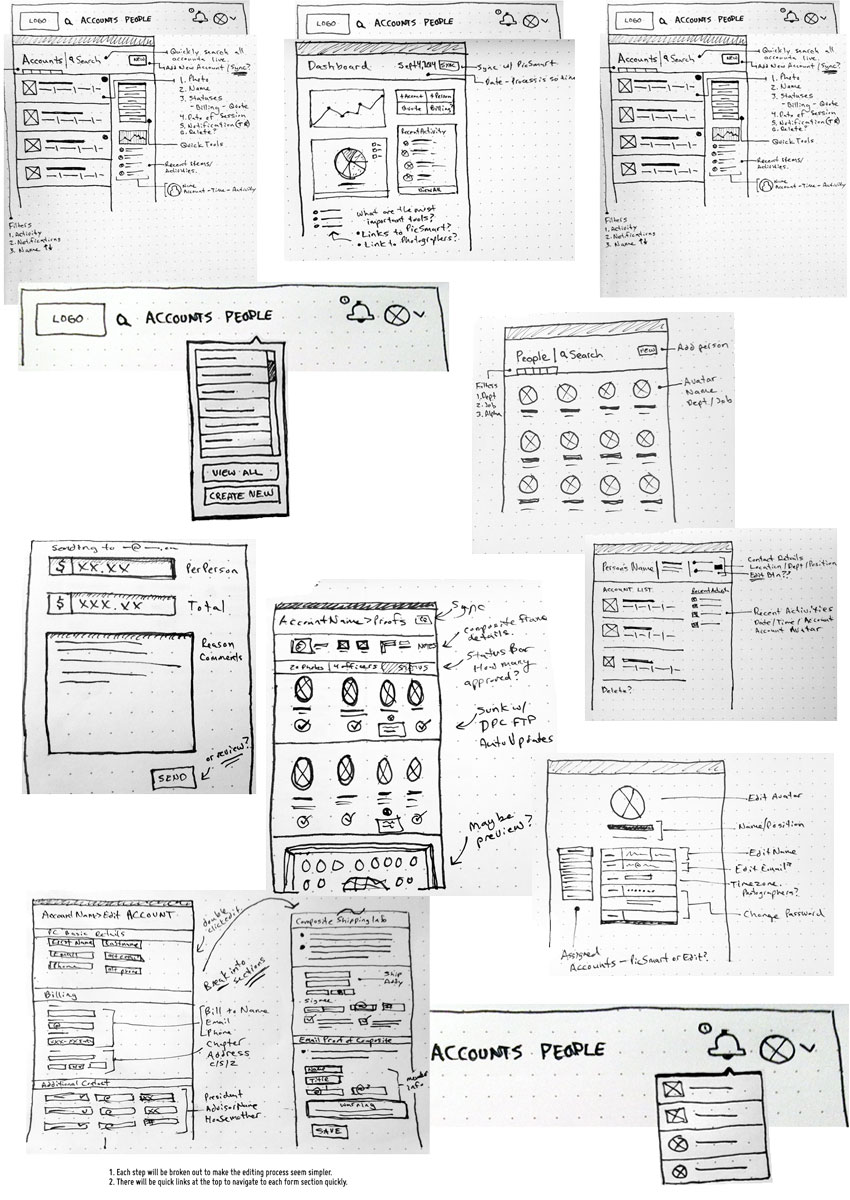 LOGO
ACCOUNTS PEOPLE
Accounts
Search
NEW
Quickly search all
accounts live.
Add New Account / Sync?
1. Photo
2. Name
3. Statuses
- Billing - Quote
4. Date of Session
5. Notification
6. Delete?
Quick Tools
Recent Items/
Activities.
Name
Account - Time - Activity
Filters
1. Activity
2. Notifications
3. Name
LOGO
ACCOUNTS PEOPLE
Dashboard
Sept 4, 2014
SYNC
Sync w/ PicSmart
Date - Process is so time
+Account
+Person
Quote
Billing?
Recent Activity
View All
What are the most
important tools?
• Links to PicSmart?
• Link to Photographers?
LOGO
ACCOUNTS PEOPLE
Accounts
Search
NEW
Quickly search all
accounts live.
Add New Account / Sync?
1. Photo
2. Name
3. Statuses
- Billing - Quote
4. Date of Session
5. Notification
6. Delete?
Quick Tools
Recent Items/
Activities.
Name
Account - Time - Activity
Filters
1. Activity
2. Notifications
3. Name
LOGO
ACCOUNTS PEOPLE
VIEW ALL
CREATE NEW
People | Search
new
Add person
Filters
1. Dept
2. Job
3. Alpha
Avatar
Name
Dept / Job
Sending to
$ XX.XX
Per Person
$ XXX.XX
Total
Reason
Comments
or review?
SEND
Account Name > Proofs
Sync
composite frame
details.
NOTES
20 Photos | 4 officers
STATUS
Status Bar
How many
approved?
Sunk w/
DPC FTP
Auto Updates
Maybe
preview?
Person's Name
Contact Details
Location / Dept / Position
Edit Btn??
ACCOUNT LIST
Recent Activities
Date / Time / Account
Account Avatar
Delete?
Edit Avatar
Name/Position
Edit Name
Edit Email
Timezone
Photographers?
Change Password
Assigned
Accounts - PicSmart or Edit?
Account Name > Edit ACCOUNT
PC Basic Details
First Name
Last name
Email
Phone
alt phone
double
click edit
Break into
sections
Billing
Bill to Name
Email
Phone
Chapter
Address
C/S/Z
Additional Contact
President
Advisor Name
Housemother
Composite Shipping Info
Ship
Only
Signee
Email Proof of Composite
Name
Title
member
info
Warning
SAVE
ACCOUNTS PEOPLE
1. Each step will be broken out to make the editing process seem simpler.
2. There will be quick links at the top to navigate to each form section quickly.